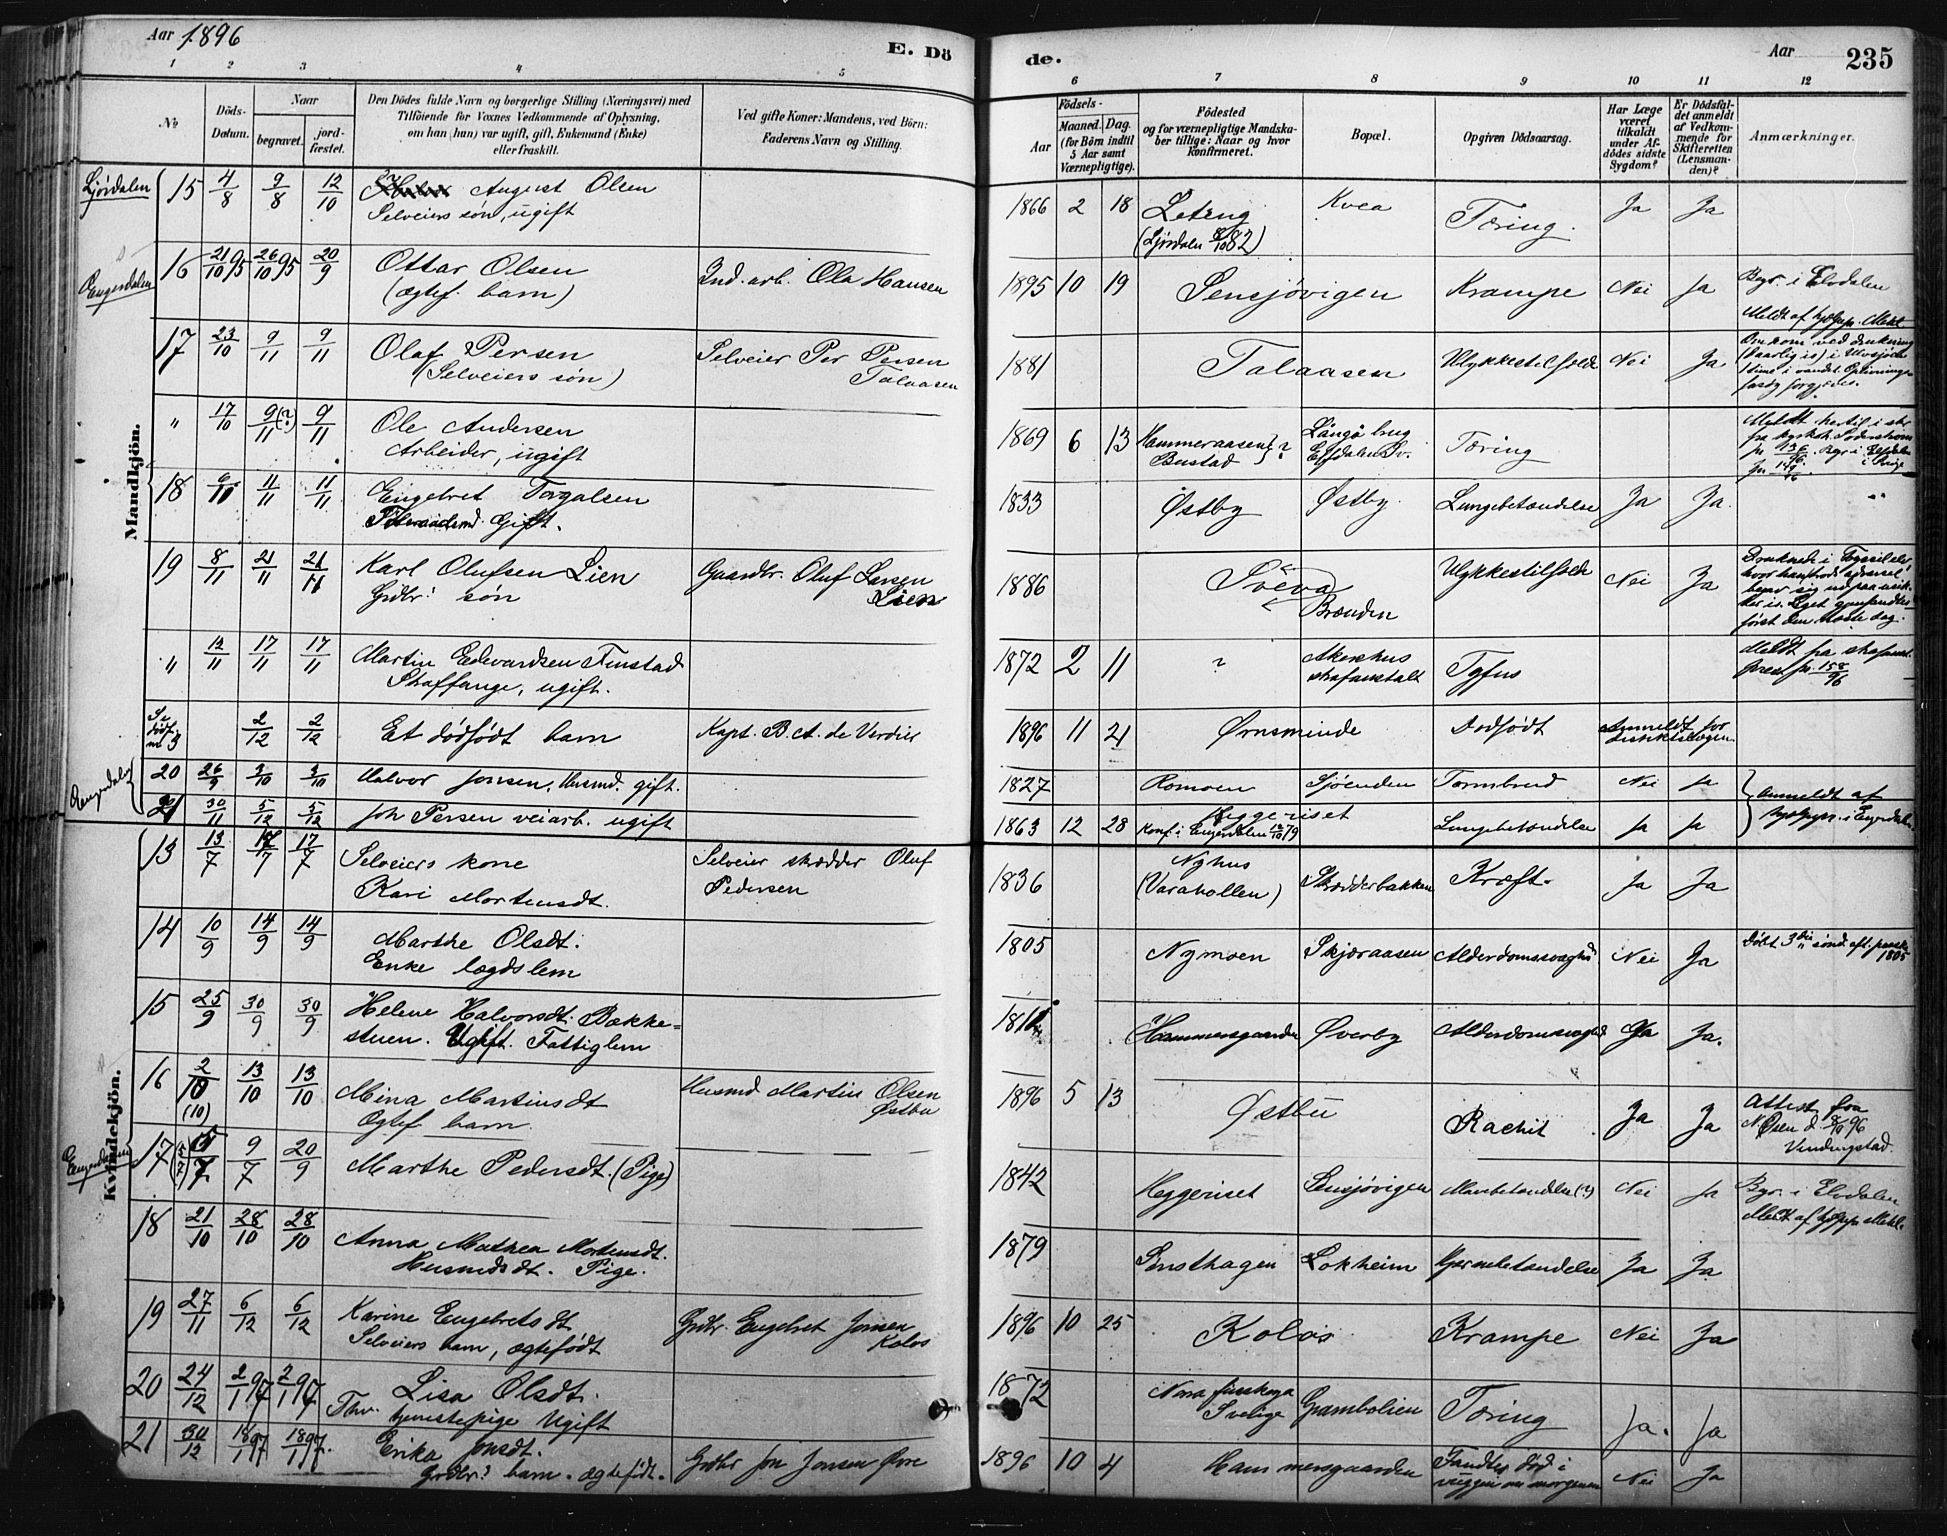 Aar 1896
E. Dö
de.
Aar
235
1 2 3 4 5 6 7 8 9 10 11 12
No
Döds-
Datum.
Naar
begravet.
jord-
fæstet.
Den Dödes fulde Navn og borgerlige Stilling (Næringsvei) med
Tilföiende for Voxnes Vedkommende af Oplysning,
om han (hun) var ugift, gift, Enkemand (Enke)
eller fraskilt.
Ved gifte Koner: Mandens, ved Börn:
Faderens Navn og Stilling.
Födsels-
Aar
Maaned. Dag.
(for Börn indtil
5 Aar samt
Værnepligtige).
Födested
og for værnepligtige Mandska-
ber tillige: Naar og hvor
Konfirmeret.
Bopæl.
Opgiven Dödsaarsag.
Har Læge
været
tilkaldt
under Af-
dödes sidste
Sygdom?
Er Dödsfal-
det anmeldt
af Vedkom-
mende for
Skifteretten
(Lensman-
den)?
Anmærkninger.
Mandkjön.
Kvindekjön.
Ljørdalen 15 4/8 9/8 12/10 August Olsen 1866 2 18 Letrug Kvea Tæring. Ja Ja
Selveiers søn, ugift (Ljørdalen 8/10 82)
Engerdalen 16 21/10 95 26/10 95 20/9 Ottar Olsen Ind. arb. Ola Hansen 1895 10 19 Sensjøvigen Krampe Nei Ja Begr. i Elvdalen
(ægtef. barn)
17 23/10 9/11 9/11 Olaf Persen Selveier Per Persen 1881 Talaasen Ulykkestilfælde Nei Ja Omkom ved drukning
(Selveiers søn) Talaasen
" 17/10 9/11 (?) 9/11 Ole Andersen 1869 6 13 Hammeraasen Långå brug Tæring
Arbeider, ugift Bustad } ? Elfdalen Sv.
18 6/11 11/11 11/11 Engebret Torgalsen 1833 Østby Østby. Lungebetændelse Ja Ja.
Gift.
19 8/11 21/11 21/11 Karl Olufsen Lien Gaardbr. Oluf Larsen 1886 Svéva Ulykkestilfælde Nei Ja
Grdbr: søn Lien Brænden
" 12/11 17/11 17/11 Martin Edvardsen Finstad 1872 2 11 ? Akershus Tyfus
Straffange, ugift. strafanstalt
dødf. nr 3 2/12 2/12 Et dødfødt barn Kapt. B. A. de Verdier 1896 11 21 Ørnsminde Dødfødt Anmeldt for
distriktslægen
Engerdalen 20 26/9 3/10 3/10 Halvor Jonsen, Husmd. gift. 1827 Romoen Sjøenden Tarmbrud Nei Ja anmeldt af
21 30/11 5/12 5/12 Joh Persen veiarb. ugift 1863 12 28 Heggeriset Lungebetændelse Ja Ja
Konf. i Engerdalen 12/10 79
13 13/7 17/7 17/7 Selveiers kone Selveier skrædder Oluf 1836 Nyhus Skrædderbakken Kræft. Ja Ja
Kari Mortensdt. Pedersen (Varahollen)
14 10/9 14/9 14/9 Marthe Olsdt: 1805 Nymoen Skjæraasen Alderdomssvaghd Nei Ja Døbt 3die sønd. aft. paaske 1805
Enke lægdslem
15 25/9 30/9 30/9 Helene Halvorsdt: Bække= Hammersgaarden Øverby Alderdomssvaghd Ja Ja.
stuen. Ugift. Fattiglem
16 2/10 13/10 13/10 Mina Martinsdt Husmd Martin Olsen 1896 5 13 Østbu Rachit Ja Ja Attest fra
(10) Ægtef barn. Østbu
Engerdalen 17 9/7 20/9 Marthe Pedersdt. (Pige) 1842 Heggeriset Sensjøvigen Mavebetændelse (?) Nei Ja Begr. i Elvdalen
18 21/10 28/10 28/10 Anna Mathea Mortensdt. 1879 Sinsthagen Lokheim Hjernebetændelse Ja Ja
Husmdsdt. Pige.
19 27/11 6/12 6/12 Karine Engebretsdt Grdbr. Engebret Jonsen 1896 10 25 Kolos Krampe Nei Ja
Selveiers barn, ægtefødt Kolos
20 24/12 2/1 97 2/1 97 Lisa Olsdt. 1872 Nora finskoga Grambolien Tæring Ja. Ja
Thv. tjenestepige Ugift Sverige
21 30/12 18/1 97 18/1 97. Erika Jonsdt. Grdbr Jon Jonsen Øvre 1896 10 4 Hammersgaarden Fandtes død i Nei Ja
Grdbr: barn. ægtefødt. vuggen om morgenen